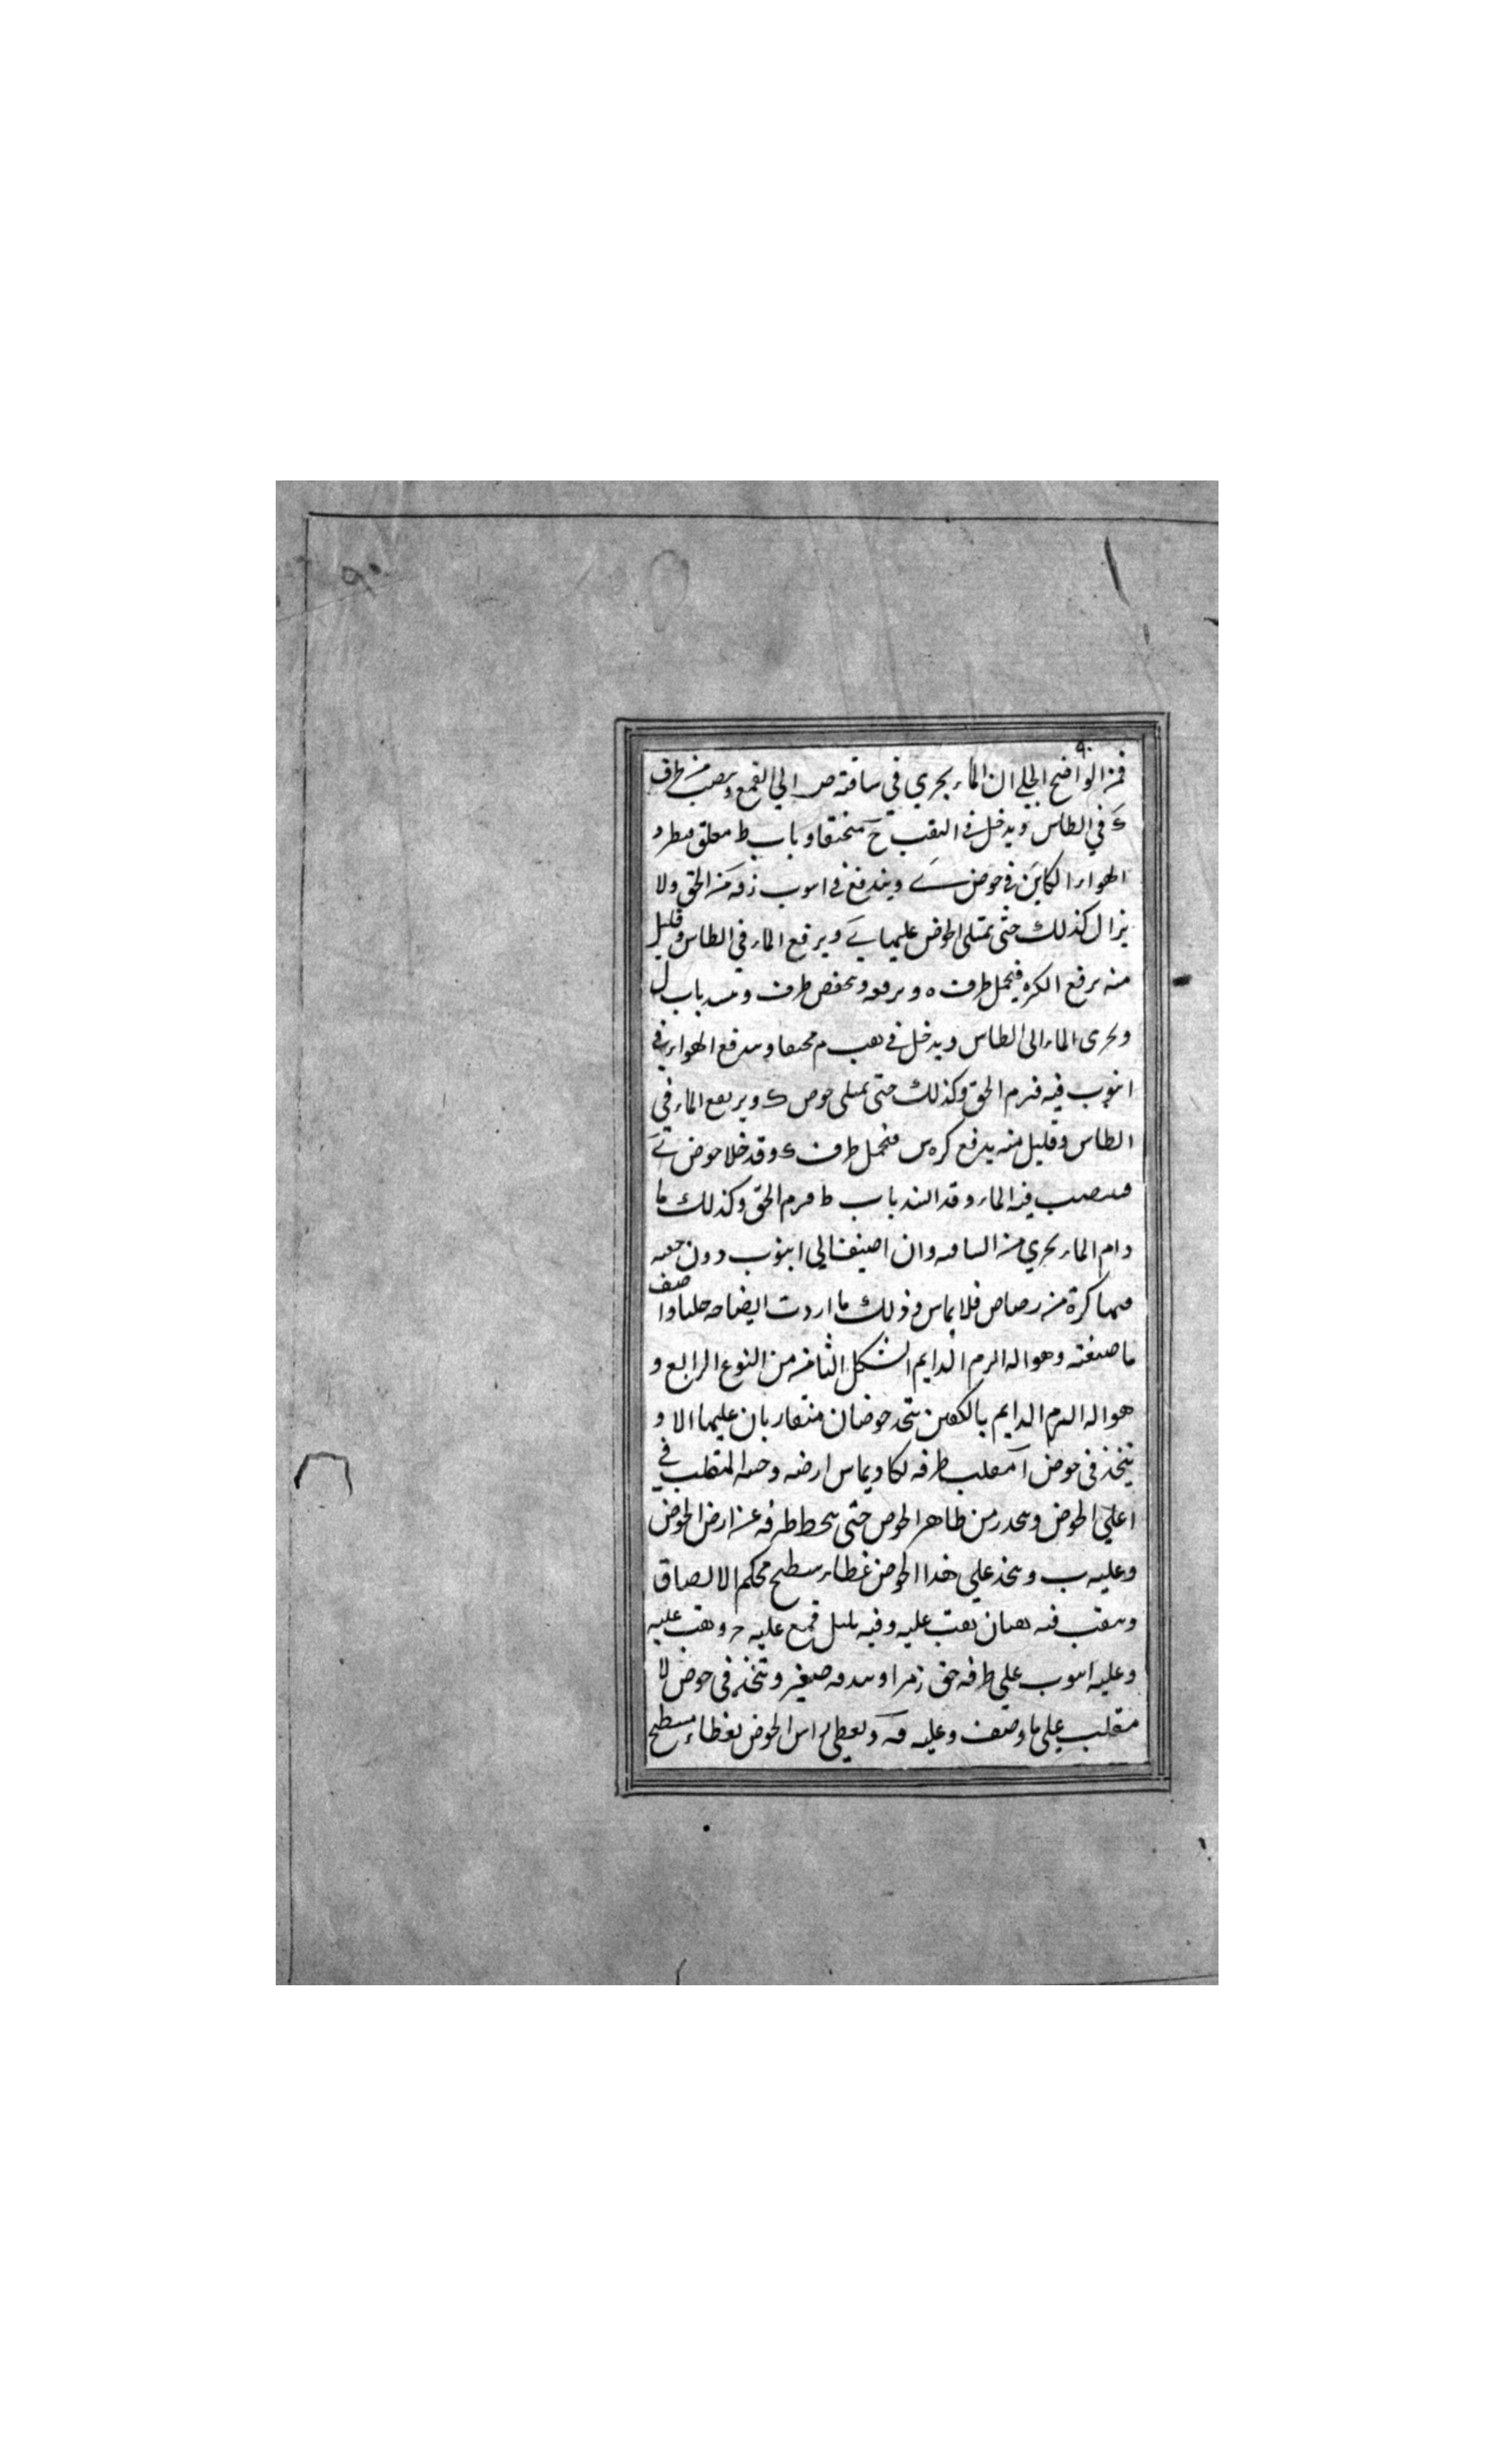 ٩٠
٩٠
فمن الواضح الجلي ان الماء يجري في ساقته ص الي القمع ويصب من طرف
ك في الطاس ويدخل في النقب ح منخنقا وباب ط معلق فيطرد
الهواء الكاين في حوض ي ويندفع في انبوب ز فه من الحق ولا
يزال كذلك حتى تمتلى الحوض عليها ي ويرفع الماء في الطاس وقليل
منه يرفع الكره فيحمل طرف ه ويرفعه ويخفض طرف و بسد باب ل
ويجرى الماء الى الطاس ويدخل في نقب م مخنقا ويندفع الهواء في
انبوب فيه فيزم الحق وكذلك حتى تمتلى حوض ك ويرتفع الماء في
الطاس وقليل منه يدفع كره س فتحمل طرف ء وقد خلا حوض ي
فينصب فيه الماء وقد انسد باب ط فيزم الحق وكذلك ما
دام الماء يجري من الساقيه وان اضيفنا لي انبوب دون
فيها كرة من رصاص فلا باس وذلك ما اردت ايضاحه جليا واصف
ما صنعته وهو اله الزم الدايم الشكل الثامن من النوع الرابع و
هو اله الزم الدايم بالكفين يتخذ حوضان متقاربان عليهما ا لا و
يتخذ في حوض آ مقلب طرفه لكا ويماس ارضه وحنيه المقلب في
اعلي الحوض وينحدر من ظاهر الحوض حتى ينحط طرفه عن ارض الحوض
وعليه ب ويتخذ علي هذا الحوض غطاء سطيح محكم الالصاق
وينقب فيه نقبان نقب عليه وفيه بلبل قمع عليه ح ونقب عليه
وعليه انبوب علي طرفه حق زمر او بندقه صفير ويتخذ في حوض لا
مقلب علي ما وصف وعليه فه ويغطي راس الحوض بغطاء مسطح